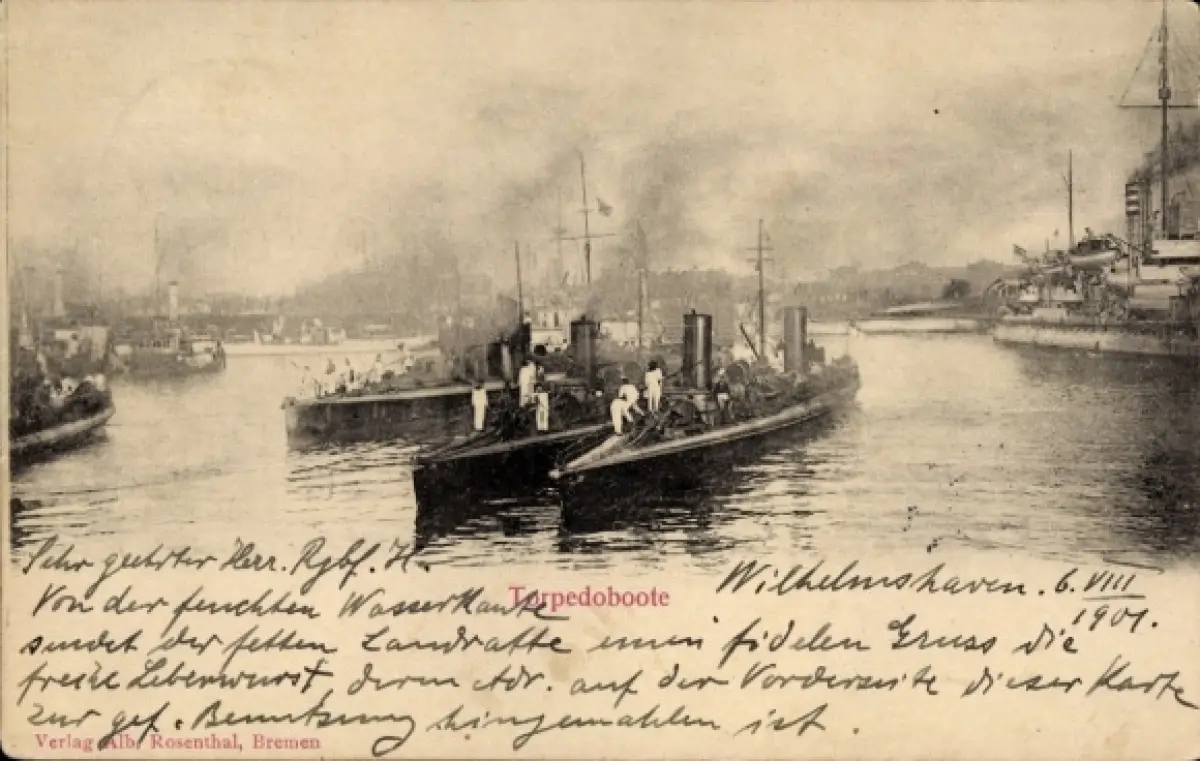 Sehr geehrter Herr. Rgbf. H.
Wilhelmshaven. 6. VIII
1901.
Torpedoboote
Von der feuchten Wasserkante
sendet der fetten Landratte einen fidelen Gruss die
Leberwurst, deren Adr. auf der Vorderseite dieser Karte
zur gef. Benutzung hingemahlen ist.
Verlag Alb. Rosenthal, Bremen